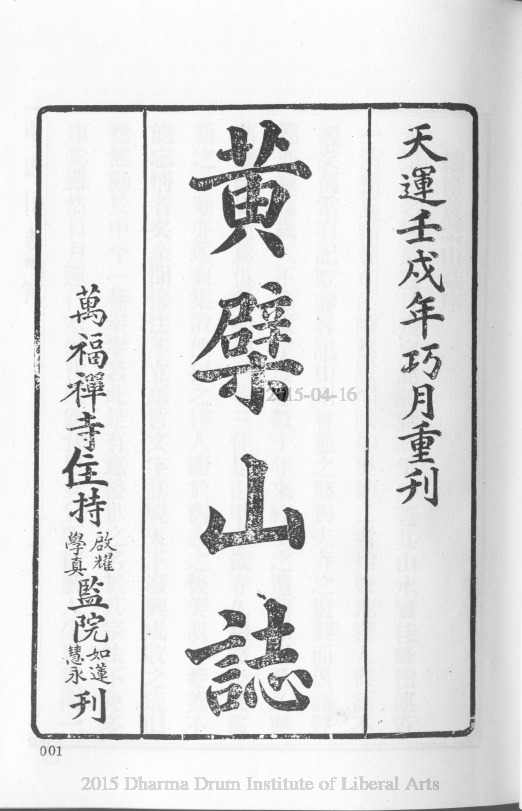 天運壬戌年巧月重刊
黄檗山誌
萬福禪寺住持啟耀學真監院如蓮慧永刊
2015-04-16
001
2015 Dharma Drum Institute of Liberal Arts